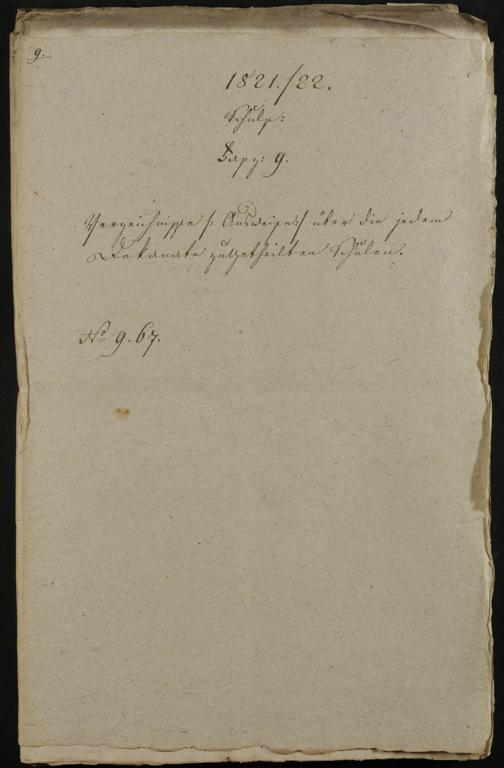 9.
1821./22.
Schulf:
Fasz: 9.
Verzeichnisse /: Ausweise :/ über die jedem
Dekanate zugetheilten Schulen.
No 9. 67.